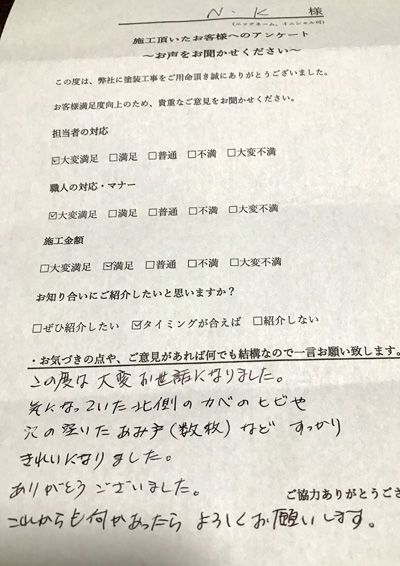 N・K 様
(ニックネーム、イニシャル可)
施工頂いたお客様へのアンケート
～お声をお聞かせください～
この度は、弊社に塗装工事をご用命頂き誠にありがとうございました。
お客様満足度向上のため、貴重なご意見をお聞かせください。
担当者の対応
☑大変満足 □満足 □普通 □不満 □大変不満
職人の対応・マナー
☑大変満足 □満足 □普通 □不満 □大変不満
施工金額
□大変満足 ☑満足 □普通 □不満 □大変不満
お知り合いにご紹介したいと思いますか？
□ぜひ紹介したい ☑タイミングが合えば □紹介しない
・お気づきの点や、ご意見があれば何でも結構なので一言お願い致します。
この度は大変お世話になりました。
気になっていた北側のカベのヒビや
穴の空いたあみ戸(数枚)など すっかり
きれいになりました。
ありがとうございました。
ご協力ありがとうござ
これからも何かあったら よろしくお願いします。